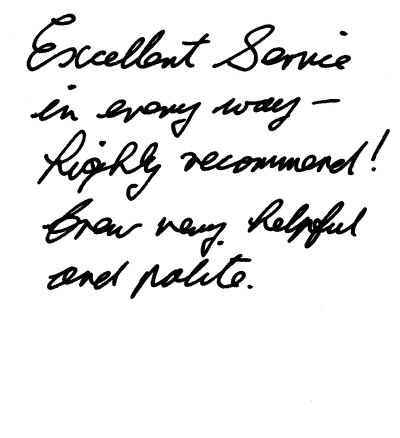 Excellent Service
in every way –
highly recommend!
Crew very helpful
and polite.